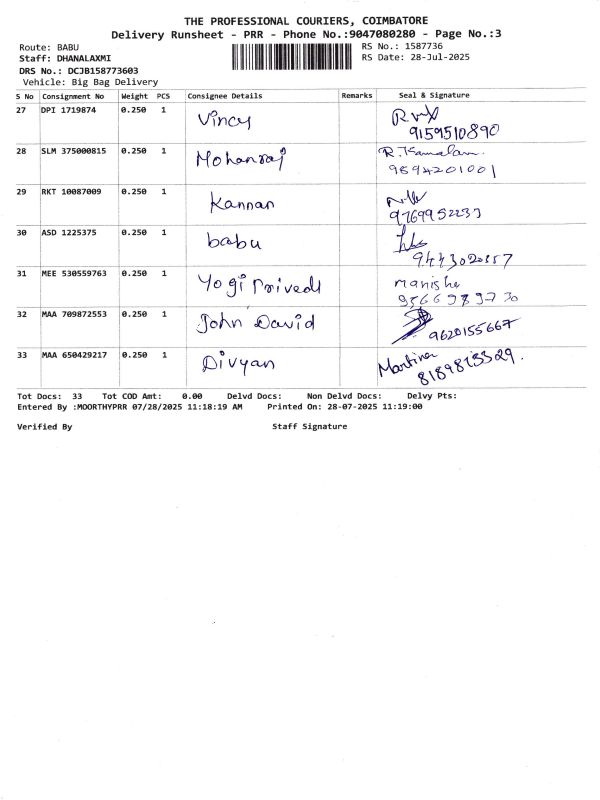 THE PROFESSIONAL COURIERS, COIMBATORE
Delivery Runsheet - PRR - Phone No.:9047080280 - Page No.:3
Route: BABU
RS No.: 1587736
Staff: DHANALAXMI
RS Date: 28-Jul-2025
DRS No.: DCJB158773603
Vehicle: Big Bag Delivery
S No Consignment No Weight PCS Consignee Details Remarks Seal & Signature
27 DPI 1719874 0.250 1 Vincy
9159510890
28 SLM 375000815 0.250 1 Mohanraj R. Kamalam
9594201001
29 RKT 10087009 0.250 1 Kannan
30 ASD 1225375 0.250 1 babu
31 MEE 530559763 0.250 1 Yogi manisha
32 MAA 709872553 0.250 1 John David
9620155667
33 MAA 650429217 0.250 1 Divyan Martina
Tot Docs: 33 Tot COD Amt: 0.00 Delvd Docs: Non Delvd Docs: Delvy Pts:
Entered By :MOORTHYPRR 07/28/2025 11:18:19 AM Printed On: 28-07-2025 11:19:00
Verified By Staff Signature